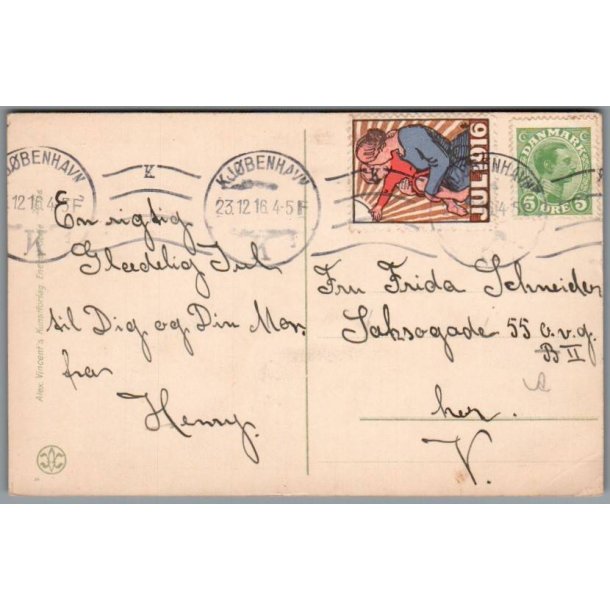 KJØBENHAVN
12 16. 4-5 F
K
K
KJØBENHAVN
23.12 16. 4-5 F
K
JUL 1916
DANMARK
5 ØRE 5
En rigtig
Glædelig Jul
til Dig og Din Mor.
fra
Henry.
Fru Frida Schneider
Saksogade 55 o.v.g.
B II
her.
V.
Alex. Vincent's Kunstforlag